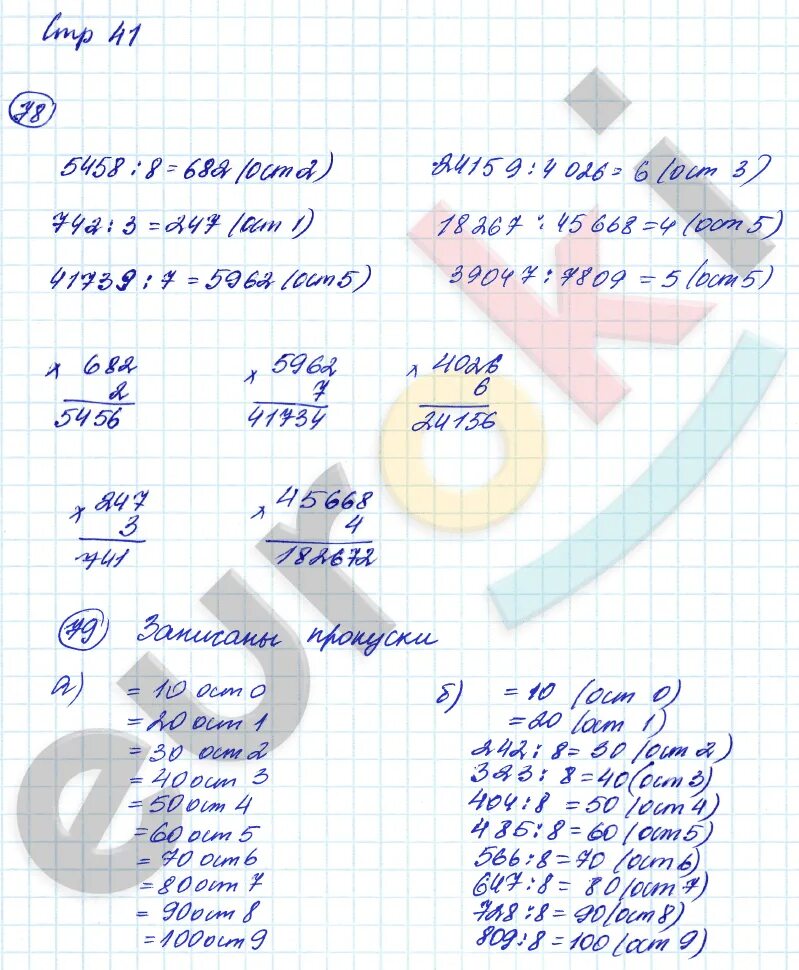 Стр 41
78
5458 : 8 = 682 (ост 2)
742 : 3 = 247 (ост 1)
41739 : 7 = 5962 (ост 5)
24159 : 4026 = 6 (ост 3)
18267 : 45668 = 4 (ост 5)
39047 : 7809 = 5 (ост 5)
x 682
2
5456
x 5962
7
41734
x 4026
6
24156
x 247
3
741
x 45668
4
182672
79 Записаны пропуски
а) = 10 ост 0
= 20 ост 1
= 30 ост 2
= 40 ост 3
= 50 ост 4
= 60 ост 5
= 70 ост 6
= 80 ост 7
= 90 ост 8
= 100 ост 9
б) = 10 (ост 0)
= 20 (ост 1)
242 : 8 = 30 (ост 2)
323 : 8 = 40 (ост 3)
404 : 8 = 50 (ост 4)
485 : 8 = 60 (ост 5)
566 : 8 = 70 (ост 6)
647 : 8 = 80 (ост 7)
728 : 8 = 90 (ост 8)
809 : 8 = 100 (ост 9)
euroki